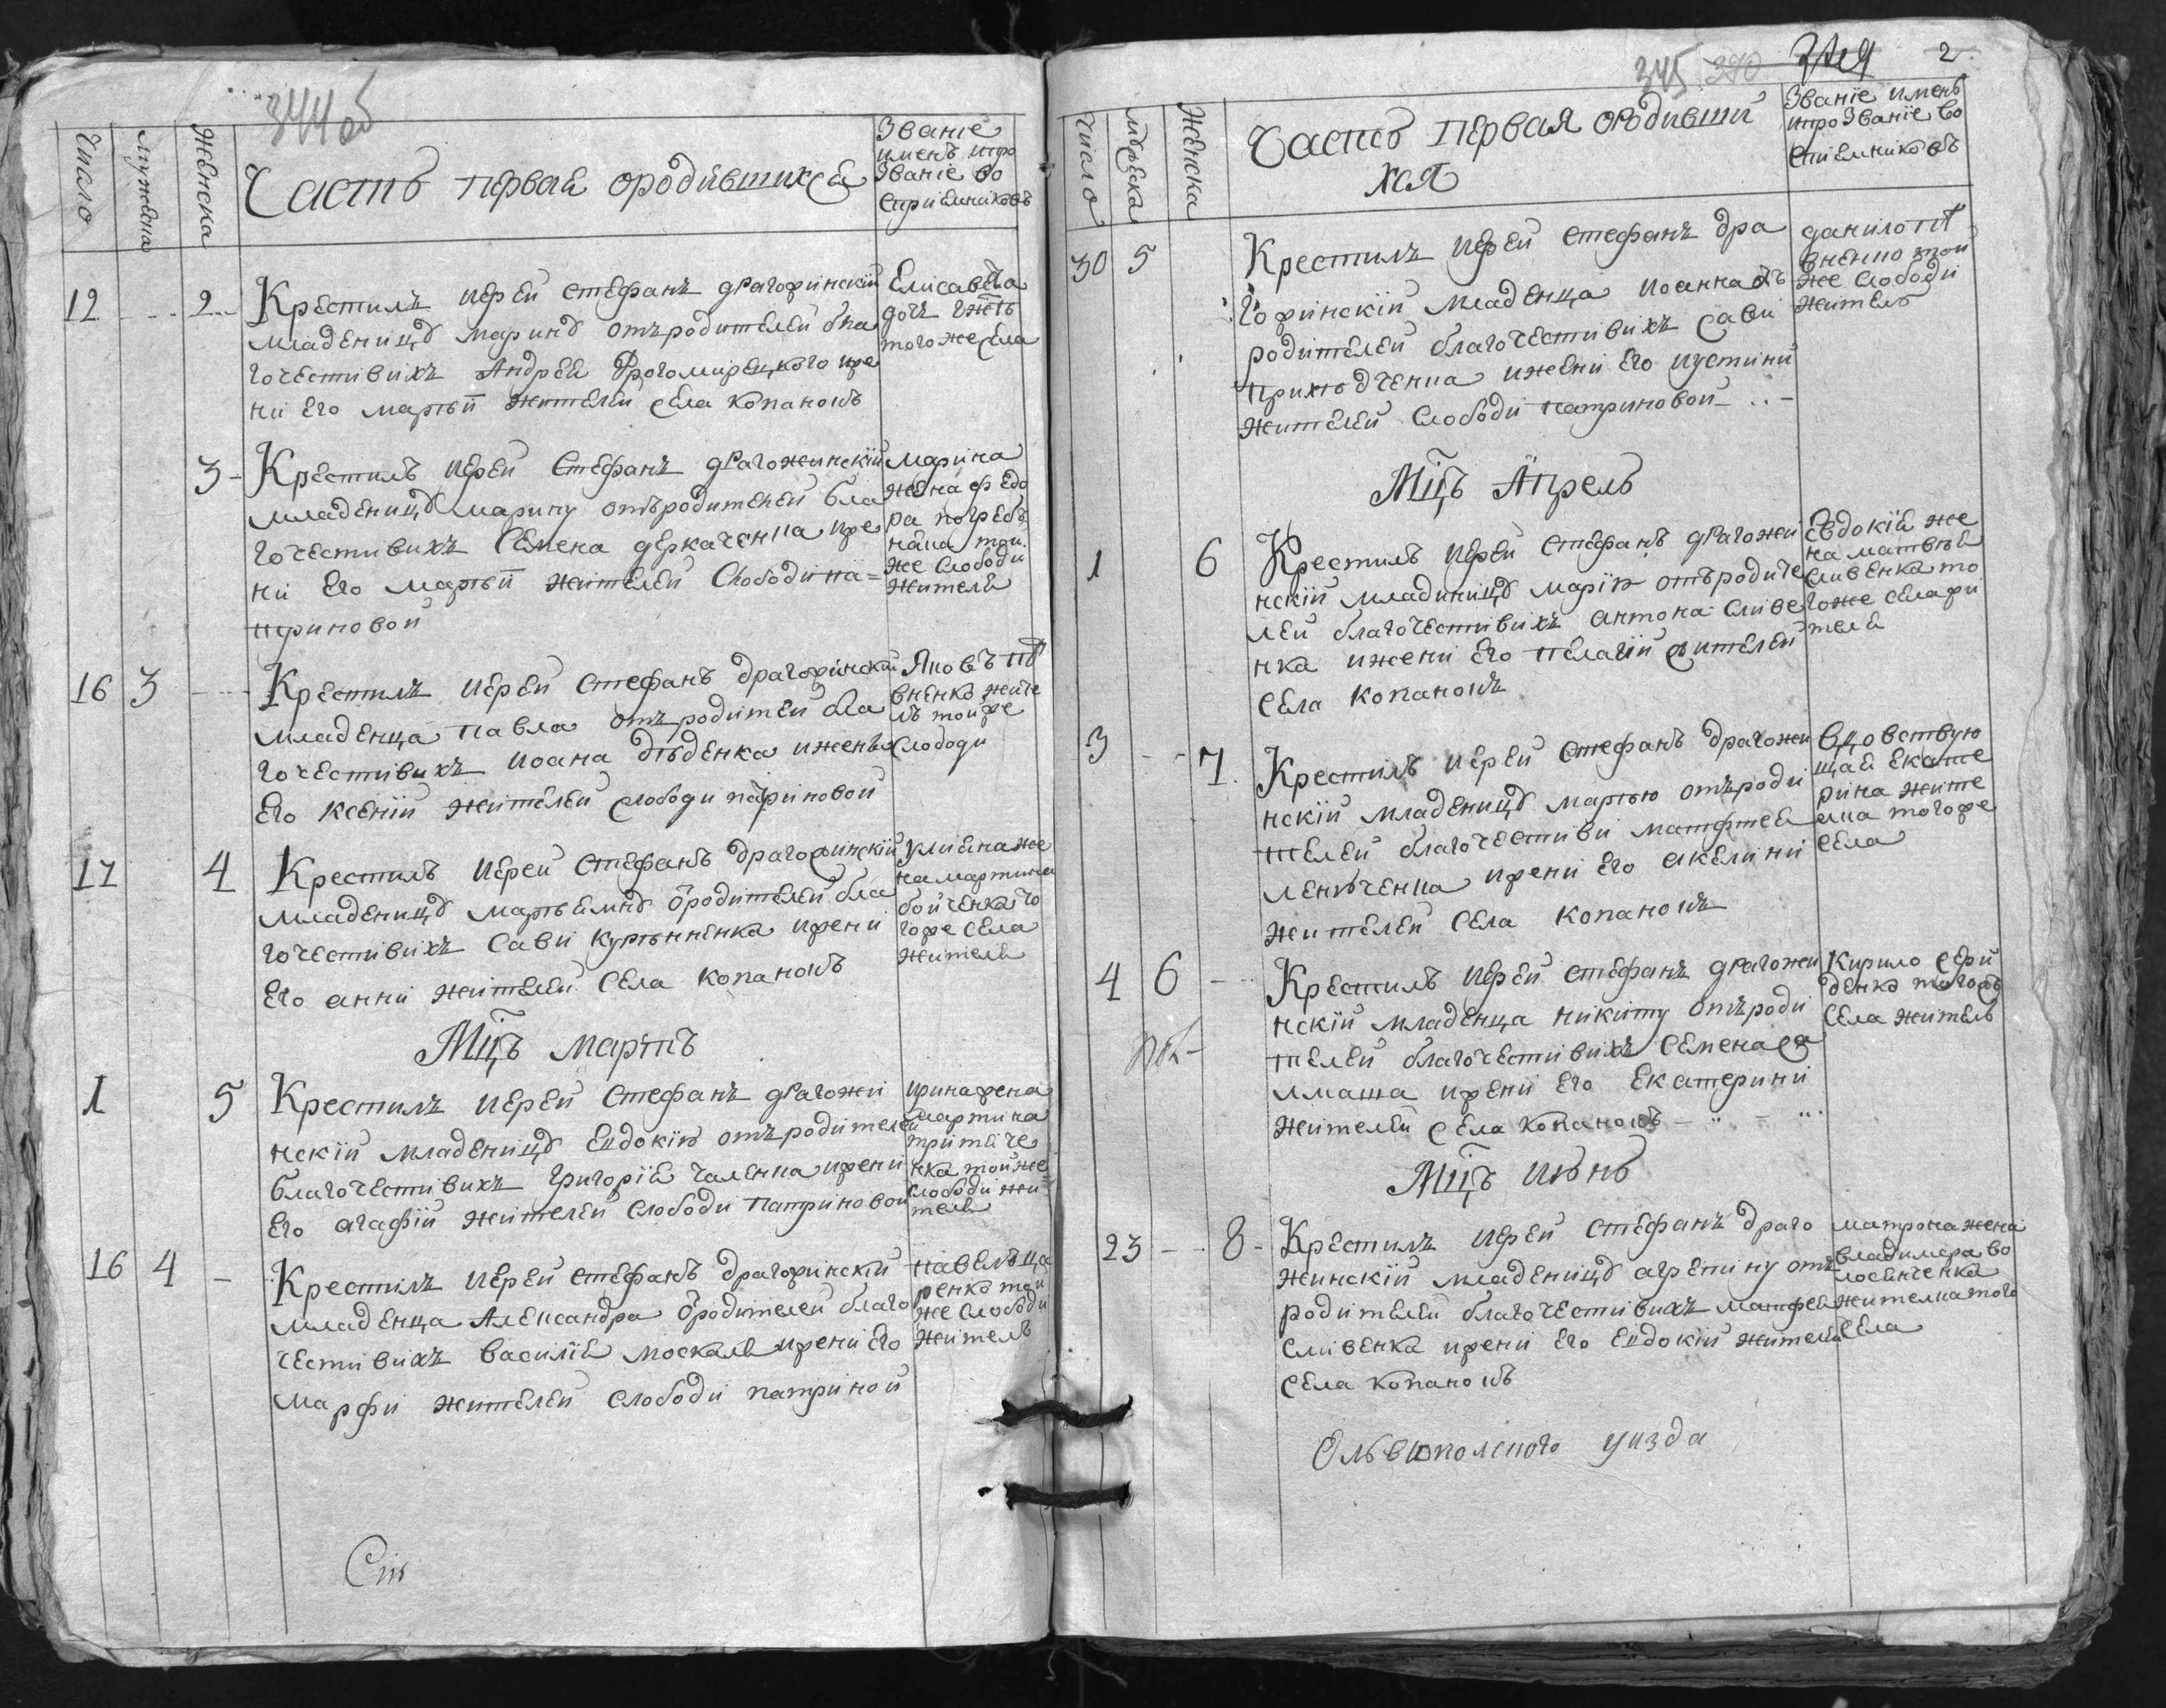 344об
Число
мужска
женска
Часть первая ородившихся
Званіе
именъ ипро
Званіе во
спріемниковъ
12 2 Крестилъ иерей стефанъ драгожинскій
младеницу марину отъродителей бла
гочестивихъ Андрея Драгомирецкого иже
ни его марѳи жителей села копанокъ
Елисавета
дочъ
того же села
3 Крестилъ иерей стефанъ драгожинскій
младеницу марину отъродителей бла
гочестивихъ Семена деркаченка иже
ни его марѳи жителей Слободи па=
триновой
марина
жена федо
ра погреб
няка той
же слободи
жителя
16 3 Крестилъ иерей стефанъ драгожинскій
младенца павла отъродителей бла
гочестивихъ иоана дѣденка ижены
его ксеніи жителей слободи патриновой
Яковъ
вненко жите
лъ тойже
слободи
17 4 Крестилъ иерей стефанъ драгожинскій
младеницу марѳ ародителей бла
гочестивихъ Сави ижени
его анни жителей Села копанокъ
улияна же
на мартина
бойченка то
гоже села
жителя
Мцъ мартъ
1 5 Крестилъ иерей стефанъ драгожи
нскій младеницу Евдокію отъродителей
благочестивихъ григорія чаленка ижени
его агафіи жителей слободи патриновой
ирина жена
мартина
нка тойже
слободи жи
теля
16 4 Крестилъ иерей стефанъ драгожинскій
младенца Александра ородителей благо
честивихъ василія москаля ижени его
марфи жителей слободи патриной
павелъ ца
ренко той
же слободи
житель
Сію
345 390 2
Число
мужска
Женска
Часть первая ородивши
хся
Званіе именъ
ипрозваніе во
спіемниковъ
30 5 Крестилъ иерей стефанъ дра
гожинскій младенца иоанна отъ
родителей благочестивихъ сави
приходченка ижени его иустини
жителей слободи патриновой
данило
вненко той
же слободи
житель
Мцъ Апрель
1 6 Крестилъ иерей стефанъ драгожи
нскій младиницу марію отъродите
лей благочестивихъ антона сливе
нка ижени его пелагіи жителей
села копанокъ
Евдокія же
на матвѣя
сливенка то
гоже села жи
теля
3 7 Крестилъ иерей стефанъ драгожи
нскій младеницу марѳю отъроди
телей благочестиви матфтея
ижени его акелини
жителей села копанокъ
Вдовствую
щая екате
рина жите
лка тогоже
села
4 6 Крестилъ иерей стефанъ драгожи
нскій младенца никиту отъроди
телей благочестивихъ семена са
лмаша ижени его екатерини
жителей села копанокъ
Кирило сери
денко тогожъ
села житель
Мцъ июнь
23 8 Крестилъ иерей стефанъ драго
жинскій младеницу агрепину отъ
родителей благочестивихъ матфея
сливенка ижени его евдокіи жителей
села копанокъ
матрона жена
владимера во
лосянченка
жителка того
села
Ольвиополского уизда